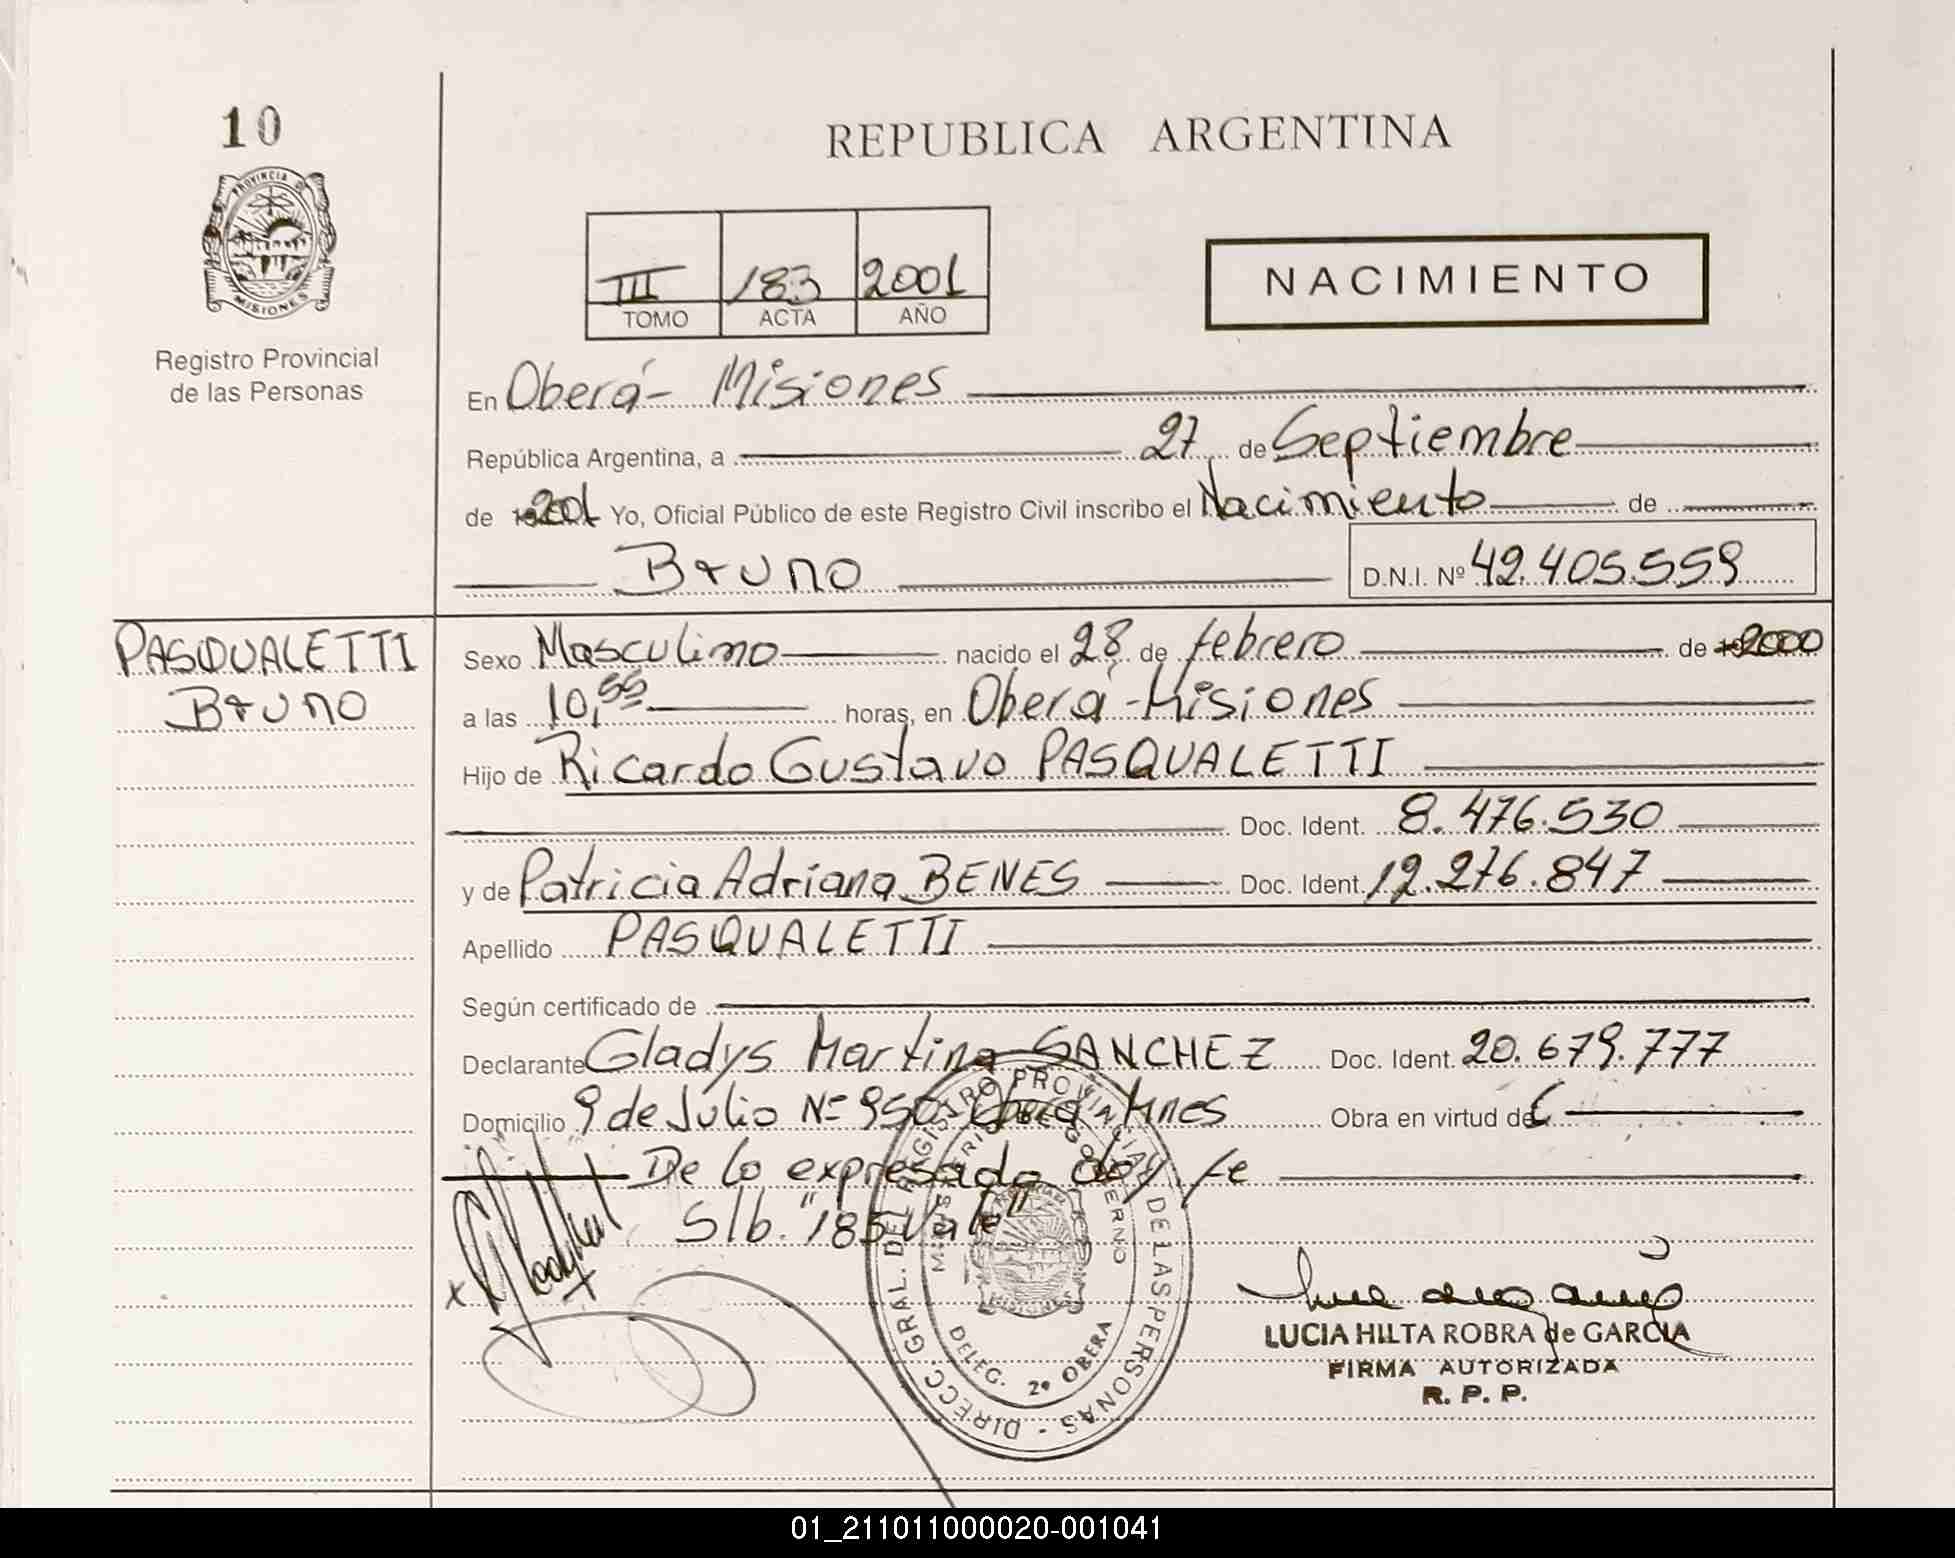 10
PROVINCIA DE
MISIONES
Registro Provincial
de las Personas
REPUBLICA ARGENTINA
III 183 2001
TOMO ACTA AÑO
NACIMIENTO
En Oberá - Misiones
República Argentina, a 27 de Septiembre
de 2001 Yo, Oficial Público de este Registro Civil inscribo el Nacimiento de
Bruno D.N.I. Nº 42.405.559
PASQUALETTI
Bruno
Sexo Masculino nacido el 28 de febrero de 2000
a las 10,55 horas, en Oberá - Misiones
Hijo de Ricardo Gustavo PASQUALETTI
Doc. Ident. 8.476.530
y de Patricia Adriana BENES Doc. Ident. 12.276.847
Apellido PASQUALETTI
Según certificado de
Declarante Gladys Martina SANCHEZ Doc. Ident. 20.679.777
Domicilio 9 de Julio Nº 950 - Oberá Mnes Obra en virtud de
De lo expresado doy fe
S/b. "183 Vale"
DIRECC. GRAL. DEL REGISTRO PROVINCIAL DE LAS PERSONAS
MINISTERIO DE GOBIERNO
MISIONES
DELEG. 2º OBERA
LUCIA HILTA ROBRA de GARCIA
FIRMA AUTORIZADA
R. P. P.
01_211011000020-001041